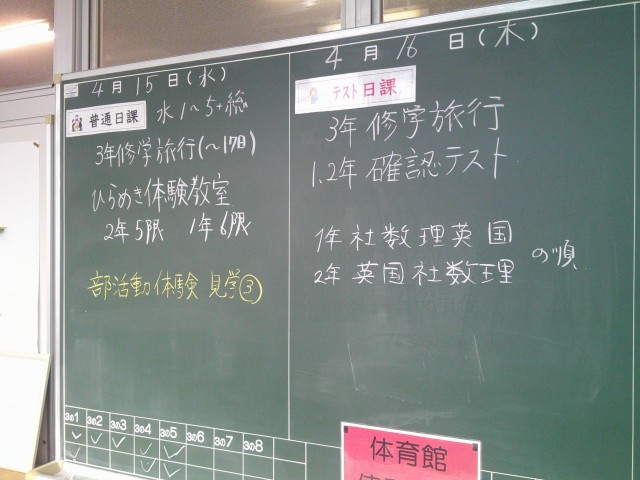 4月15日(水)
普通日課
水1~5+総
3年修学旅行(~17日)
ひらめき体験教室
2年5限 1年6限
部活動体験 見学③
4月16日(木)
テスト日課
3年修学旅行
1.2年確認テスト
1年 社数理英国
2年 英国社数理
の順
3の1 3の2 3の3 3の4 3の5 3の6 3の7 3の8
体育館